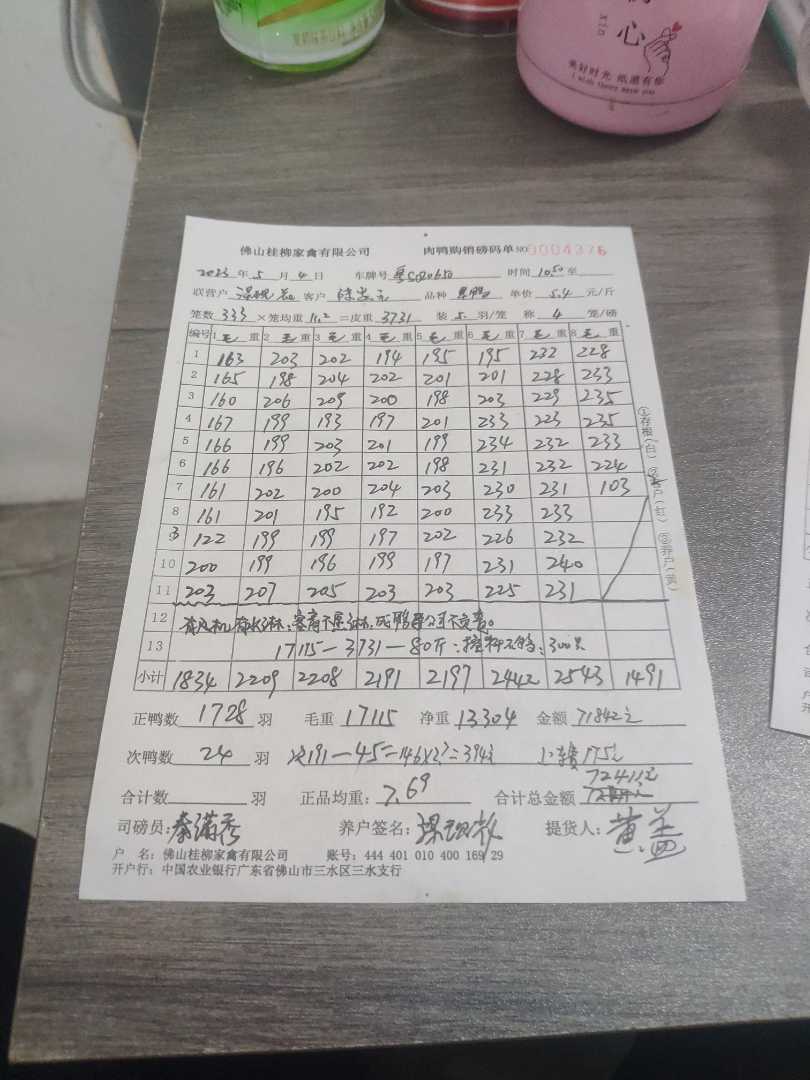 心
xin
美好时光 纸愿有你
I wish there were you
佛山桂柳家禽有限公司 肉鸭购销磅码单 NO 0004376
2023 年 5 月 4 日 车牌号 时间 1050 至
联营户 客户 品种 单价 5.4 元/斤
笼数 333 ×笼均重 11.2 =皮重 3731 装 5 羽/笼 称 4 笼/磅
编号 1 毛 重 2 毛 重 3 毛 重 4 毛 重 5 毛 重 6 毛 重 7 毛 重 8 毛 重
1 163 203 202 194 195 195 232 228
2 165 198 204 202 201 201 228 233
3 160 206 209 200 198 203 229 235
4 167 199 193 197 201 233 223 235
5 166 199 203 201 199 234 232 233
6 166 196 202 202 198 231 232 224
7 161 202 200 204 203 230 231 103
8 161 201 195 192 200 233 233
9 122 199 199 197 202 226 232
10 200 199 196 199 197 231 240
11 203 207 205 203 203 225 231
12
13 17115-3731-80斤: 300只
小计 1834 2209 2208 2191 2197 2442 2543 1491
①存根(白) ②客户(红) ③养户(黄)
正鸭数 1728 羽 毛重 17115 净重 13304 金额 71842元
次鸭数 24 羽 次191-45=146×2.7=394元 175元
72411元
合计数 羽 正品均重: 7.69 合计总金额
司磅员: 养户签名: 提货人:
户 名: 佛山桂柳家禽有限公司 账号: 444 401 010 400 169 29
开户行: 中国农业银行广东省佛山市三水区三水支行